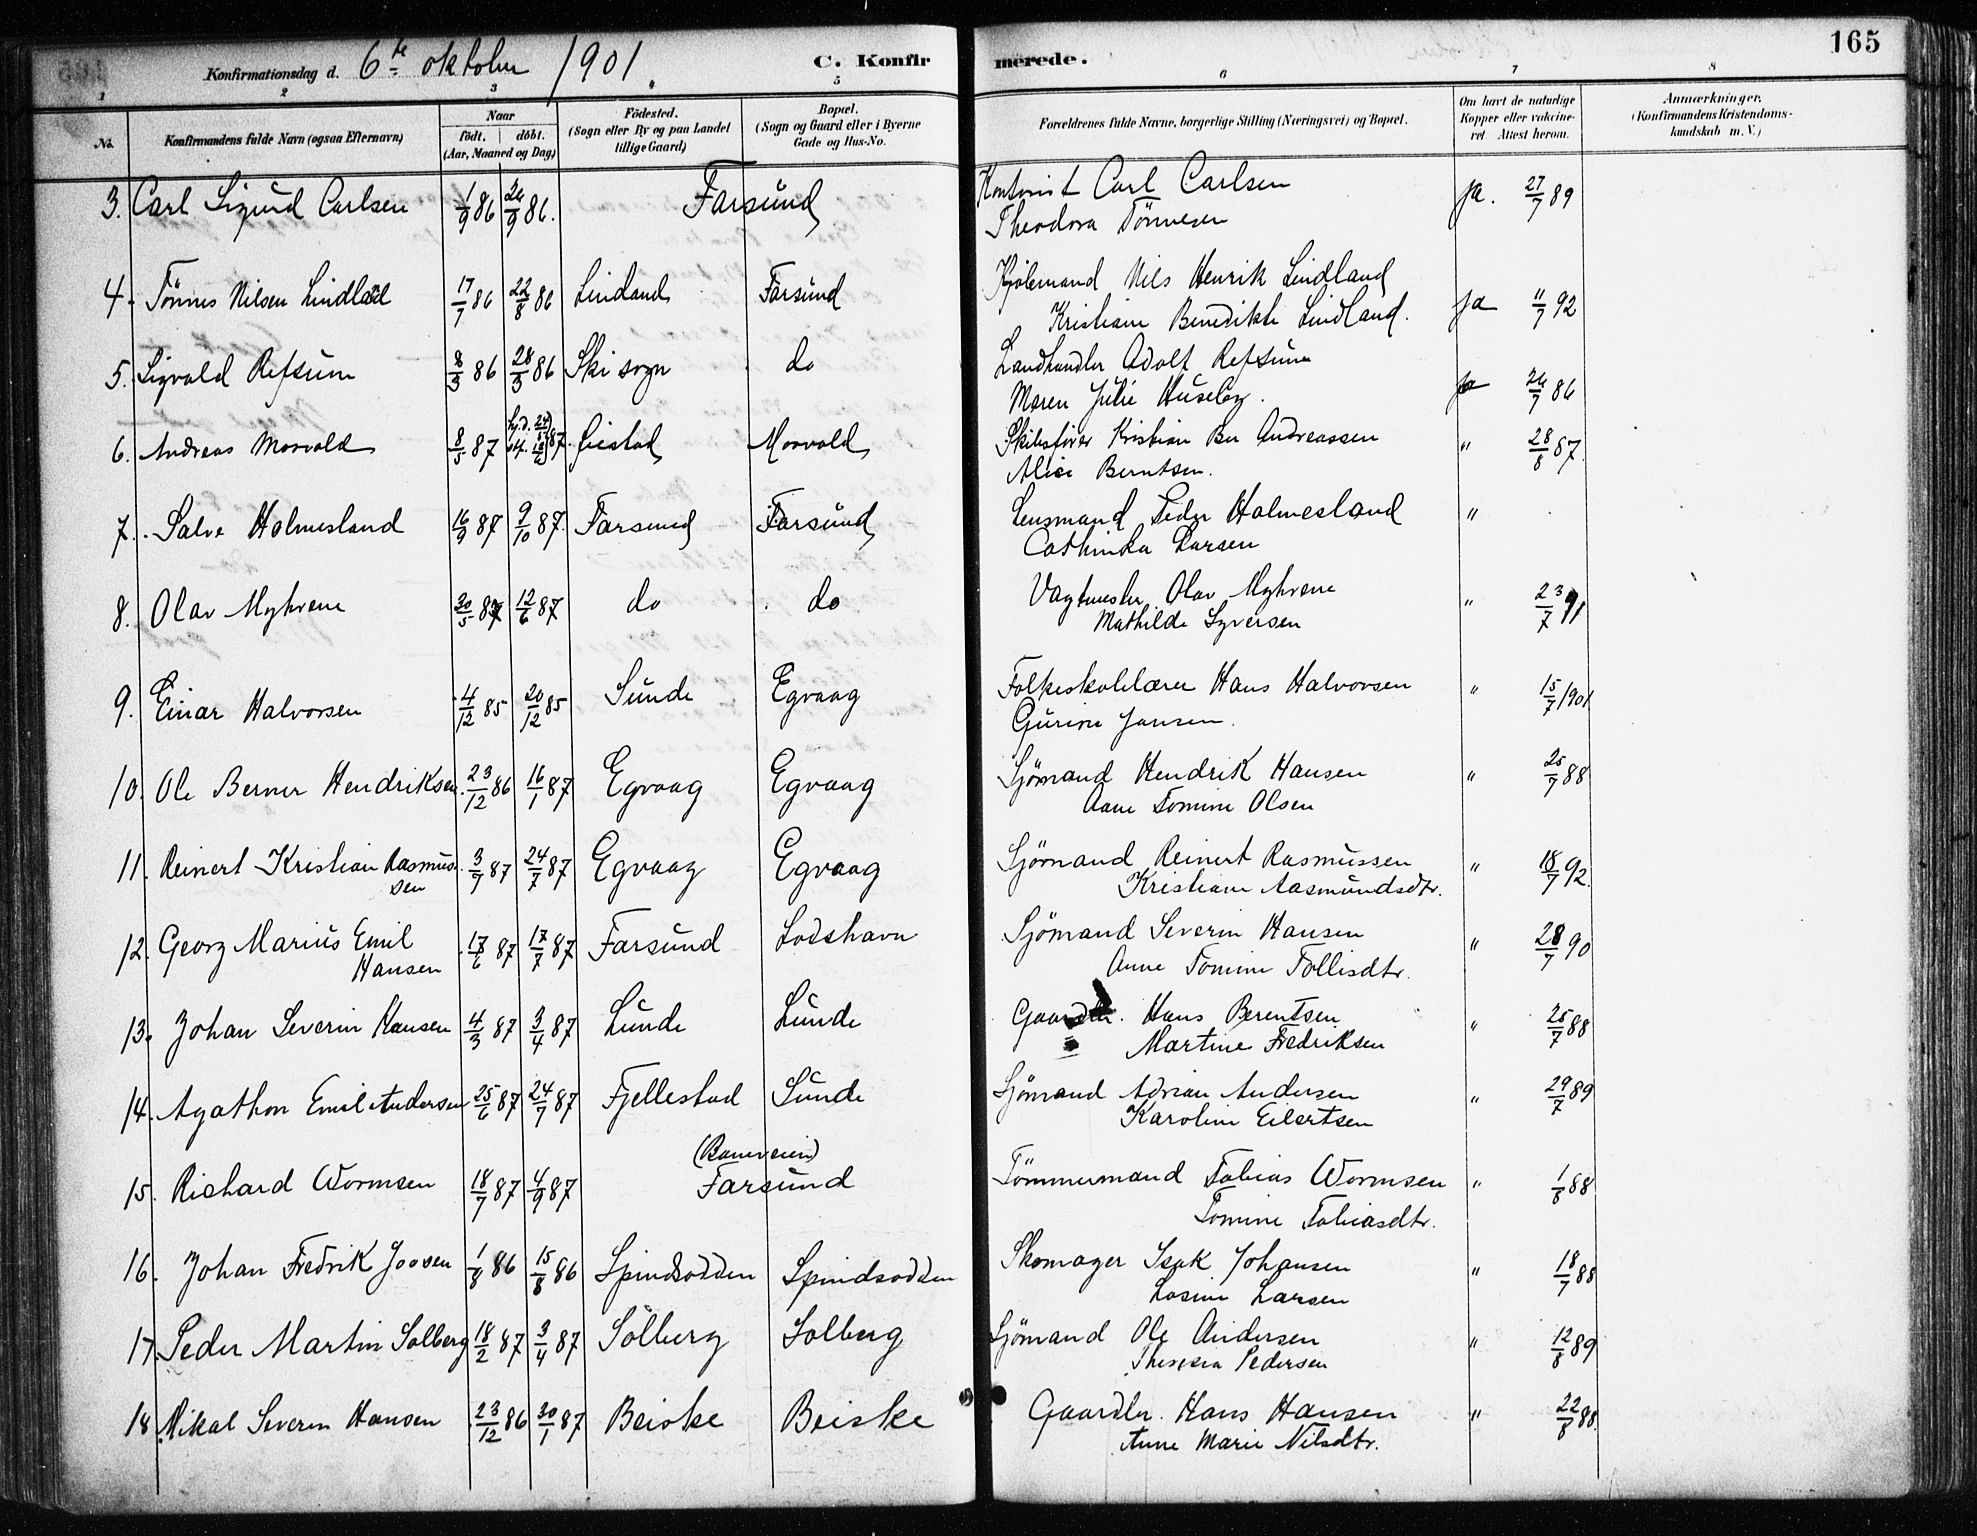 165
Konfirmationsdag d. 6te oktober 1901. C. Konfirmerede.
1 2 3 4 5 6 7 8
No. Konfirmandens fulde Navn (ogsaa Efternavn) Naar födt. döbt. (Aar, Maaned og Dag) Födested. (Sogn eller By og paa Landet tillige Gaard) Bopæl. (Sogn og Gaard eller i Byerne Gade og Hus-No. Forældrenes fulde Navne, borgerlige Stilling (Næringsvei) og Bopæl. Om havt de naturlige Kopper eller vaccineret Attest herom. Anmærkninger. (Konfirmandens Kristendomskundskab m. V.)
3. Carl Sigurd Carlsen 1/9 86 26/9 86. Farsund Kontorist Carl Carlsen ja. 27/7 89
Theodora Tönnesen
4. Tönnes Nilsen Lindland 17/7 86 22/8 86 Lindland Farsund Kjölemand Nils Henrik Lindland ja 11/7 92
Kristiane Benedikte Lindland.
5. Sigvald Refsum 8/3 86 28/3 86 Ski sogn do Landhandler Adolf Refsum ja 26/7 86
Maren Julie Huseby.
6. Andreas Morvold 8/5 87 Morvold Skibsförer Kristian Ber Andreassen " 28/8 87
Alice Berntsen.
7. Salve Holmesland 16/9 87 9/10 87. Farsund Farsund Lensmand Peder Holmesland "
Cathinka Larsen
8. Olav Myhrene 30/5 87 12/6 87 do do Vagtmester Olav Myhrene " 23/7 91
Mathilde Syversen
9. Einar Halvorsen 4/12 85 20/12 85 Sunde Egvaag Folkeskolelærer Hans Halvorsen " 15/7 1901
Gurine Jansen.
10. Ole Berner Hendriksen 23/12 86 16/1 87 Egvaag Egvaag Sjömand Hendrik Hansen " 25/7 88
Aane Tomine Olsen
11. Reinert Kristian Rasmussen 3/7 87 24/7 87 Egvaag Egvaag Sjömand Reinert Rasmussen " 18/7 92.
Kristiane Aasmundsdtr.
12. Georg Marius Emil Hansen 17/6 87 17/7 87 Farsund Lodshavn Sjömand Severin Hansen " 28/7 90
Anne Tomine Tollisdtr.
13. Johan Severin Hansen 4/3 87 3/4 87 Lunde Lunde Gaardbr. Hans Berentsen " 25/7 88
Martine Fredriksen
14. Agathon Emil Andersen 25/6 87 24/7 87 Fjellestad Sunde Sjömand Adrian Andersen " 29/7 89
Karoline Eilertsen
15. Richard Wormsen 18/7 87 4/9 87 (Baneveien) Farsund Tömmermand Tobias Wormsen " 1/8 88
Tomine Tobiasdtr.
16. Johan Fredrik Joosen 1/8 86 15/8 86 Spindsodden Spindsodden Skomager Isak Johansen " 18/7 88
Losine Larsen
17. Peder Martin Solberg 18/2 87 3/4 87 Solberg Solberg Sjömand Ole Andersen " 12/8 89
Theresia Pedersen
18. Mikal Severin Hansen 23/12 86 30/1 87 Beiske Beiske Gaardbr. Hans Hansen " 22/8 88.
Anne Marie Nilsdtr.